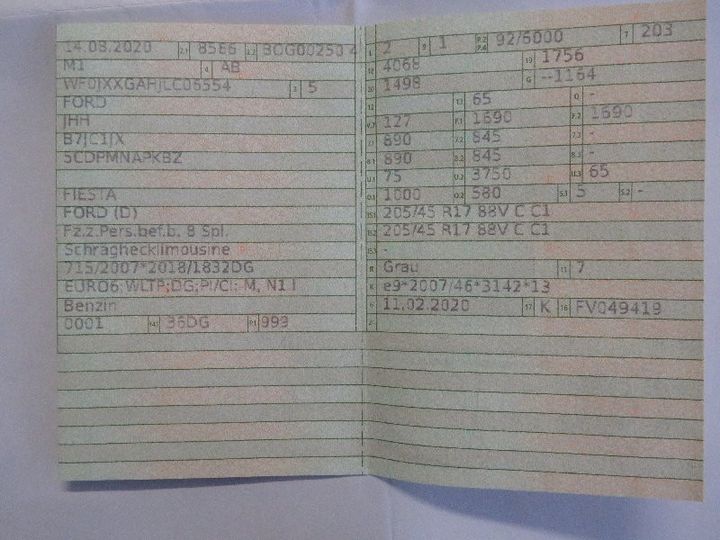 14.08.2020 2.1 8566 2.2 BOG00250 4
M1 4 AB
WF0JXXGAHJLC06554 3 5
FORD
JHH
B7JC1JX
5CDPMNAPKBZ
FIESTA
FORD (D)
Fz.z.Pers.bef.b. 8 Spl.
Schräghecklimousine
715/2007*2018/1832DG
EURO6;WLTP;DG;PI/CI; M, N1 I
Benzin
0001 14.1 36DG P.1 999
L 2 9 1 P.2 P.4 92/6000 T 203
18 4068 19 1756
20 1498 G --1164
12 - 13 65 Q -
V.7 127 F.1 1690 F.2 1690
7.1 890 7.2 845 7.3 -
8.1 890 8.2 845 8.3 -
U.1 75 U.2 3750 U.3 65
O.1 1000 O.2 580 S.1 5 S.2 -
15.1 205/45 R17 88V C C1
15.2 205/45 R17 88V C C1
15.3 -
R Grau 11 7
K e9*2007/46*3142*13
6 11.02.2020 17 K 16 FV049419
21